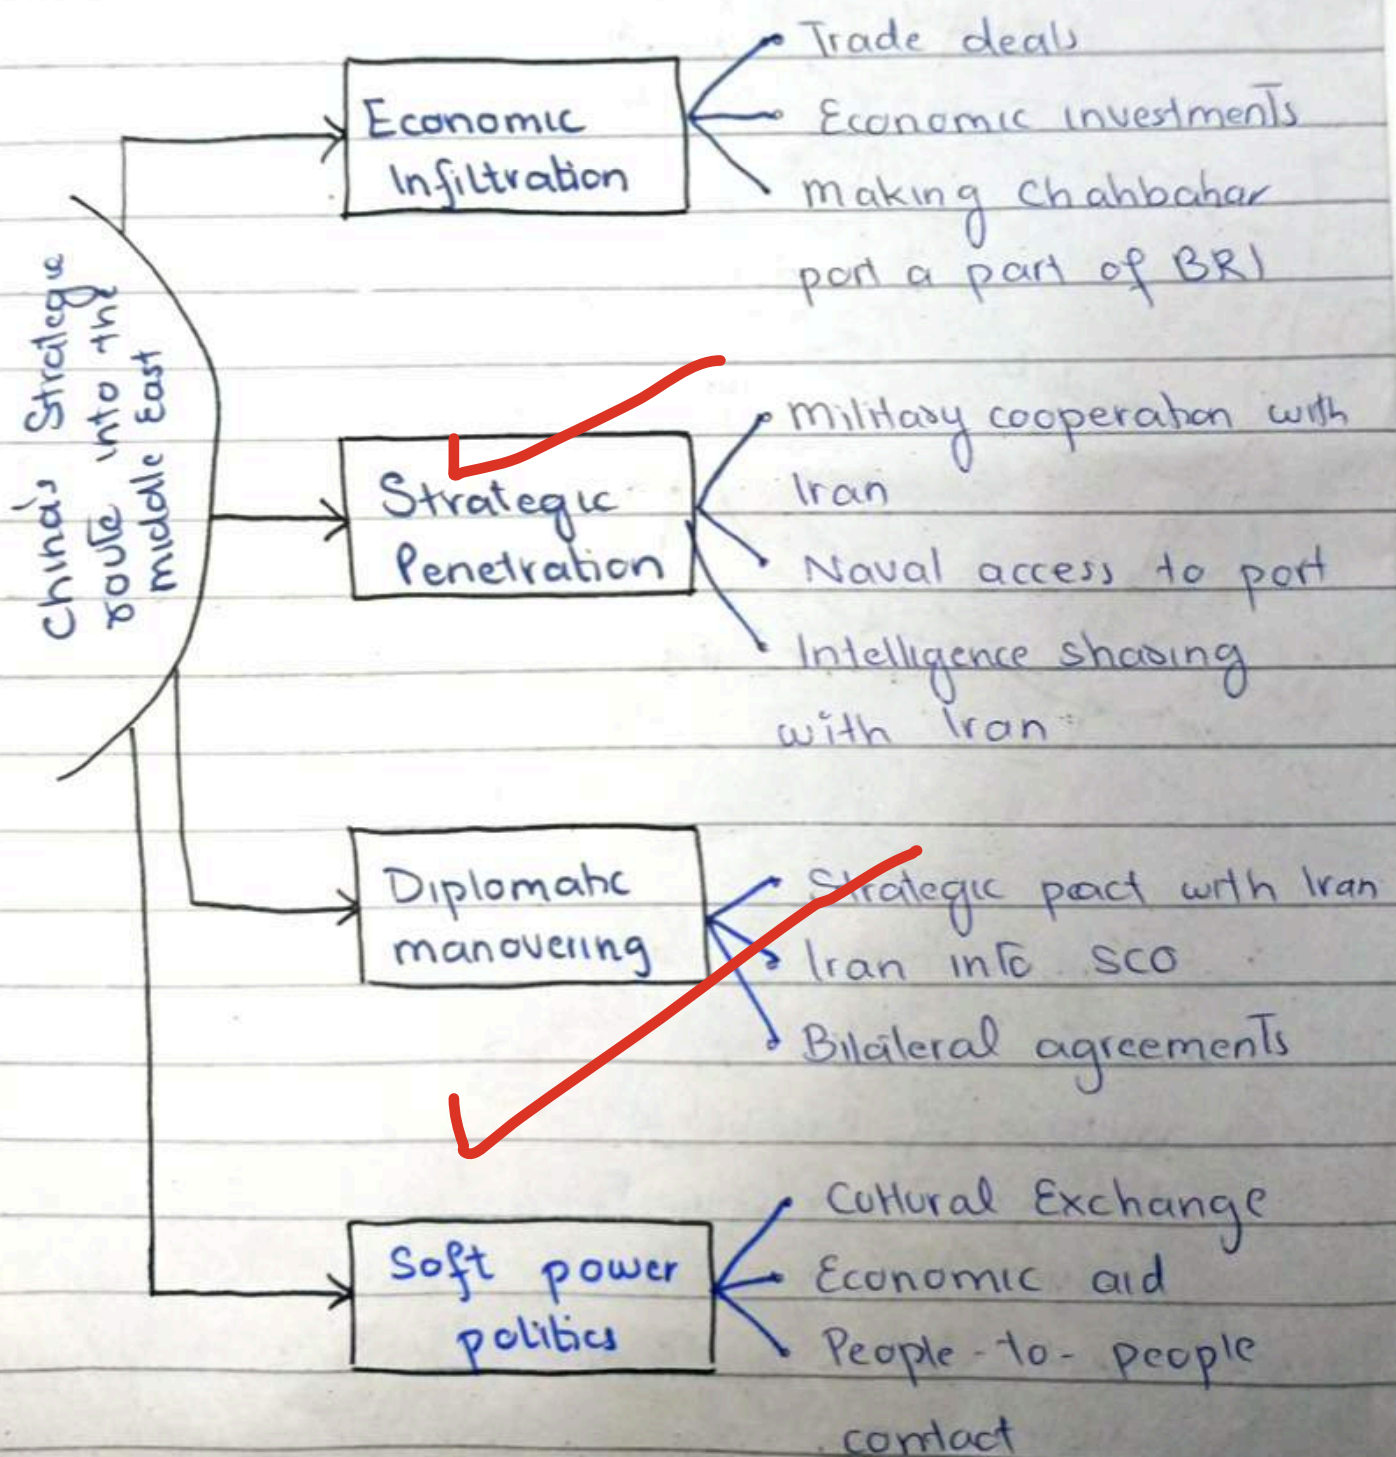 China's Strategic
route into the
middle East
Economic
Infiltration
Trade deals
Economic investments
making Chahbahar
port a part of BRI
Strategic
Penetration
military cooperation with
Iran
Naval access to port
Intelligence sharing
with Iran
Diplomatic
manovering
Strategic pact with Iran
Iran into SCO
Bilateral agreements
Soft power
politics
Cultural Exchange
Economic aid
People-to-people
contact